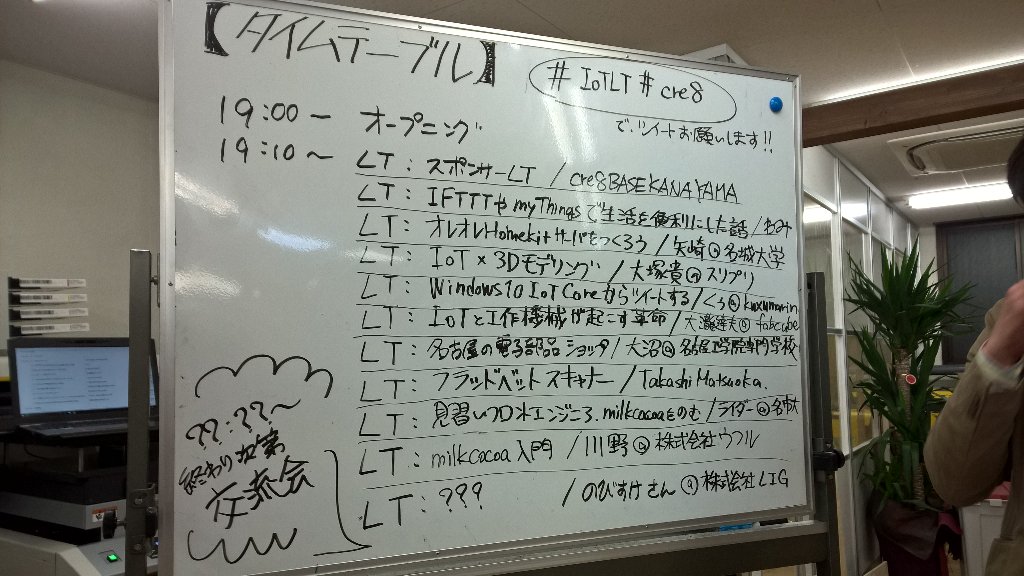 【タイムテーブル】
# IoTLT # cre8
で、ツイートお願いします!!
19:00〜 オープニング
19:10〜 LT: スポンサーLT / cre8BASEKANAYAMA
LT: IFTTTやmyThingsで生活を便利にした話 / おみ
LT: オレオレHomekitサーバをつくろう / 矢崎@名城大学
LT: IoT×3Dモデリング / 大塚貴@スリプリ
LT: Windows10 IoT Coreからツイートする / くろ@
LT: IoTと工作機械が起こす革命 / @fabcube
LT: 名古屋の電子部品ショップ / 大沼@名古屋工学院専門学校
LT: フラッドベットスキャナー / Takashi Matsuoka.
LT: 見習いフロントエンジニア milkcocoaをのむ / ライダー@名城大
LT: milkcocoa 入門 / 川野@株式会社ウフル
LT: ??? / のびすけさん@株式会社LIG
??:??〜
終わり次第
交流会